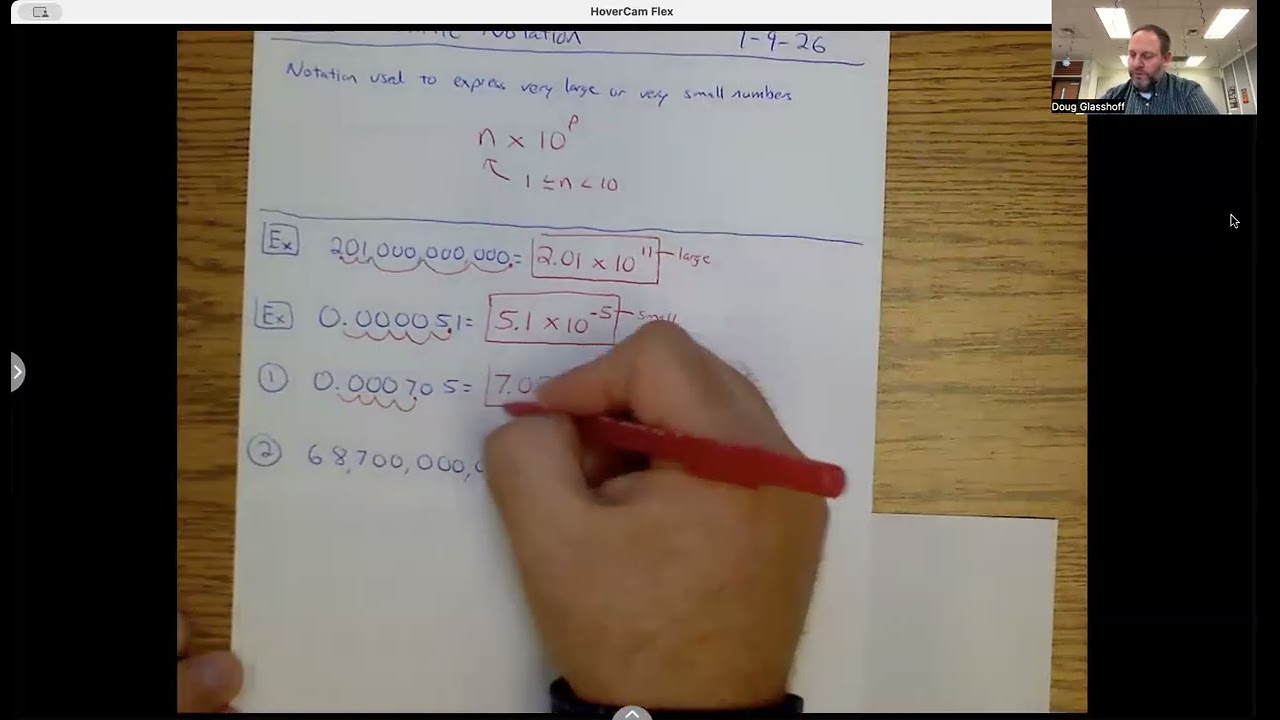 HoverCam Flex
Notation 1-9-26
Doug Glasshoff
Notation used to express very large or very small numbers
n × 10ᵖ
1 ≤ n < 10
Ex 201,000,000,000. = 2.01 × 10¹¹ large
Ex 0.000051 = 5.1 × 10⁻⁵ small
① 0.000705 = 7.0
② 68,700,000,